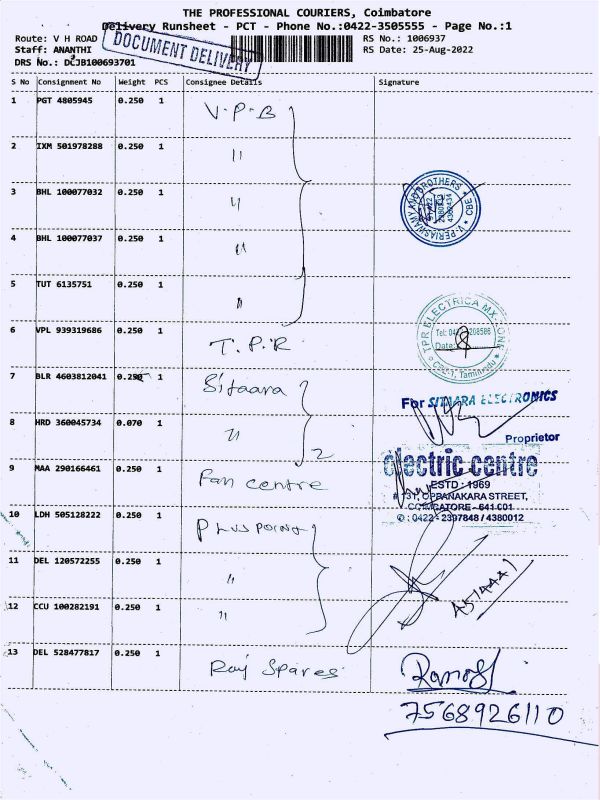 THE PROFESSIONAL COURIERS, Coimbatore
Delivery Runsheet - PCT - Phone No.:0422-3505555 - Page No.:1
Route: V H ROAD
RS No.: 1006937
Staff: ANANTHI
RS Date: 25-Aug-2022
DRS No.: DCJB100693701
DOCUMENT DELIVERY
S No Consignment No Weight PCS Consignee Details Signature
1 PGT 4805945 0.250 1 V.P.B
2 IXM 501978288 0.250 1 "
3 BHL 100077032 0.250 1 "
V. PERIASHAMY AND BROTHERS * CBE
4 BHL 100077037 0.250 1 "
5 TUT 6135751 0.250 1 "
TPR ELECTRICA
6 VPL 939319686 0.250 1 T.P.R
Date:
7 BLR 4603812041 0.250 1 Sitaara
For SITAARA ELECTRONICS
8 HRD 360045734 0.070 1 "
2
Proprietor
electric centre
9 MAA 290166461 0.250 1 Fan centre
ESTD : 1969
# 131, OPPANAKARA STREET,
COIMBATORE - 641 001
✆ : 0422 - 2397848 / 4380012
10 LDH 505128222 0.250 1 Plus point
11 DEL 120572255 0.250 1 "
12 CCU 100282191 0.250 1 "
13 DEL 528477817 0.250 1 Raj Spares
7568926110